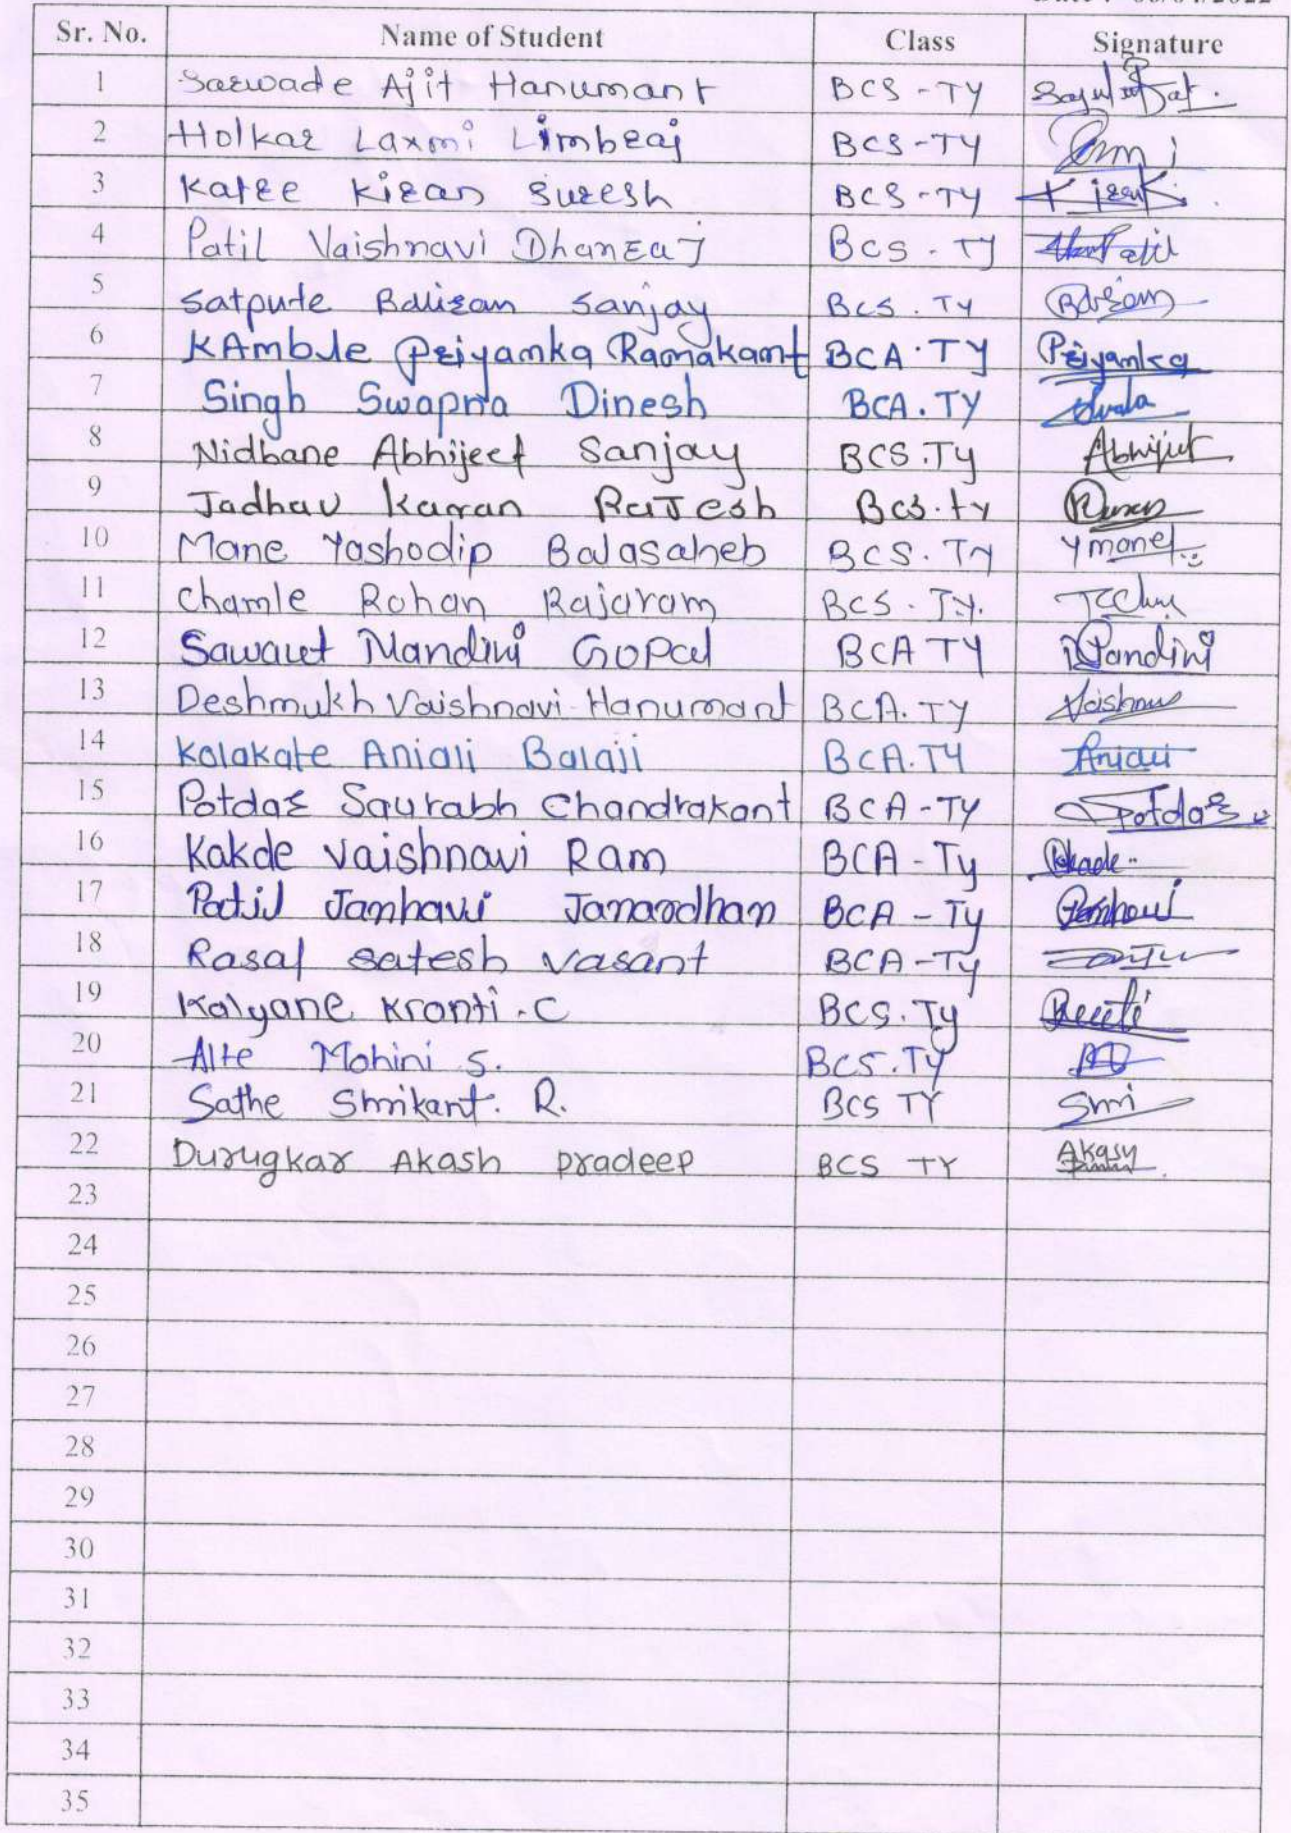 Sr. No. Name of Student Class Signature
1 Sarwade Ajit Hanumant BCS - TY
2 Holkar Laxmi Limbraj BCS - TY
3 Katre Kiran Suresh BCS - TY Kiran K.
4 Patil Vaishnavi Dhanraj BCS . TY Patil
5 Satpute Baliram Sanjay BCS . TY
6 KAmble Priyamka Ramakant BCA . TY Priyamka
7 Singh Swapna Dinesh BCA . TY
8 Nidbane Abhijeet Sanjay BCS . Ty Abhijeet
9 Jadhav Karan RaJesh Bcs . ty
10 Mane Yashodip Balasaheb BCS . TY Y mane
11 Chamle Rohan Rajaram BCS . T.Y.
12 Sawant Nandini GOPal BCA TY Nandini
13 Deshmukh Vaishnavi Hanumant BCA . TY
14 Kalakate Anjali Balaji BCA . TY Anjali
15 Potdar Saurabh Chandrakant BCA - TY Potdar
16 Kakde Vaishnavi Ram BCA - Ty
17 Patil Janhavi Janardhan BCA - Ty Janhavi
18 Rasal Satesh Vasant BCA - Ty
19 Kalyane Kranti . C BCS . Ty
20 Alte Mohini S. BCS . TY
21 Sathe Shrikant . R. BCS TY Shri
22 Durugkar Akash pradeep BCS TY Akash
23
24
25
26
27
28
29
30
31
32
33
34
35